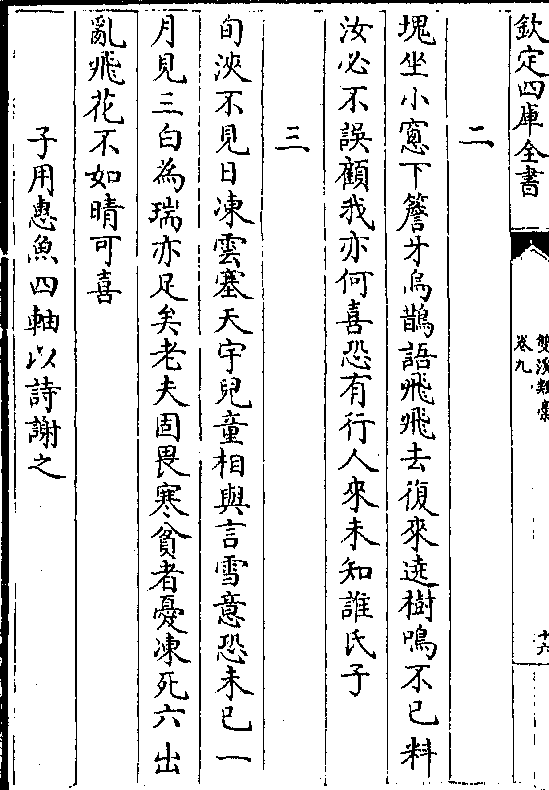 欽定四庫全書
雙溪類稾
卷九
十六
二
塊坐小窻下簷牙烏鵲語飛飛去復來遶樹鳴不已料
汝必不誤顧我亦何喜恐有行人來未知誰氏子
三
旬浹不見日凍雲塞天宇兒童相與言雪意恐未已一
月見三白為瑞亦足矣老夫固畏寒貧者憂凍死六出
亂飛花不如晴可喜
子用惠魚四軸以詩謝之